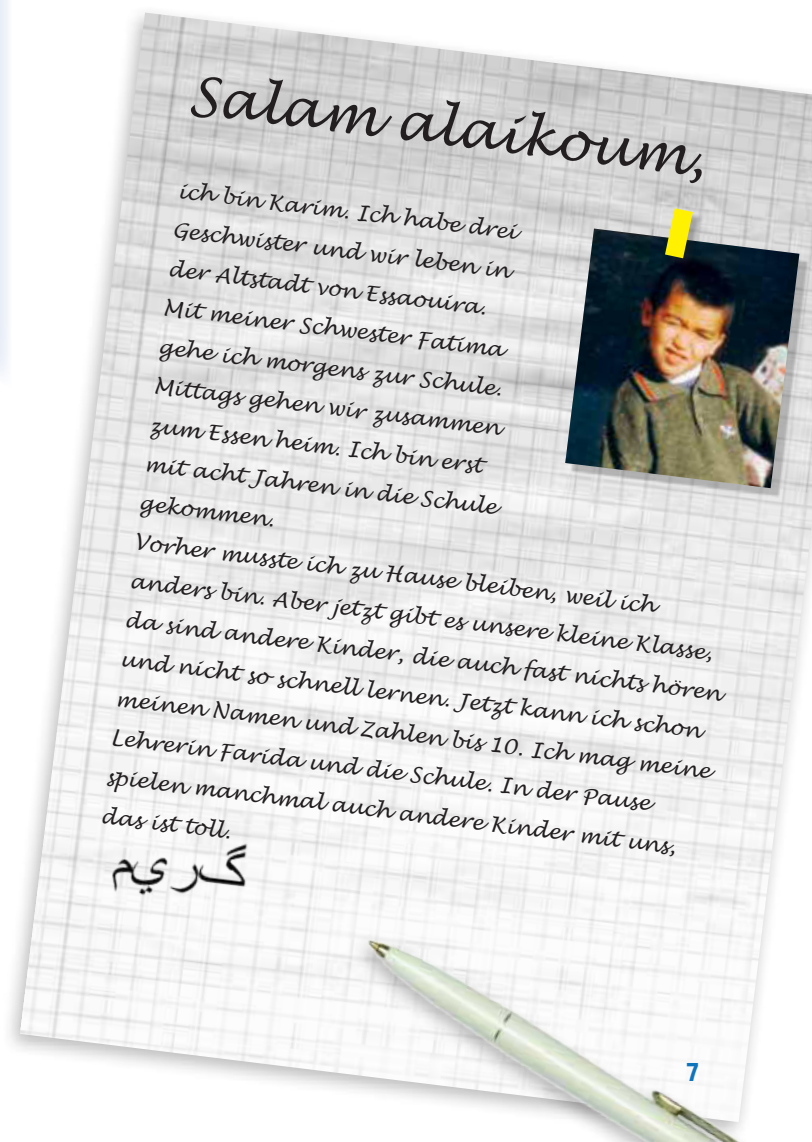 Salam alaikoum,
ich bin Karim. Ich habe drei
Geschwister und wir leben in
der Altstadt von Essaouira.
Mit meiner Schwester Fatima
gehe ich morgens zur Schule.
Mittags gehen wir zusammen
zum Essen heim. Ich bin erst
mit acht Jahren in die Schule
gekommen.
Vorher musste ich zu Hause bleiben, weil ich
anders bin. Aber jetzt gibt es unsere kleine Klasse,
da sind andere Kinder, die auch fast nichts hören
und nicht so schnell lernen. Jetzt kann ich schon
meinen Namen und Zahlen bis 10. Ich mag meine
Lehrerin Farida und die Schule. In der Pause
spielen manchmal auch andere Kinder mit uns,
das ist toll.
گر يم
7